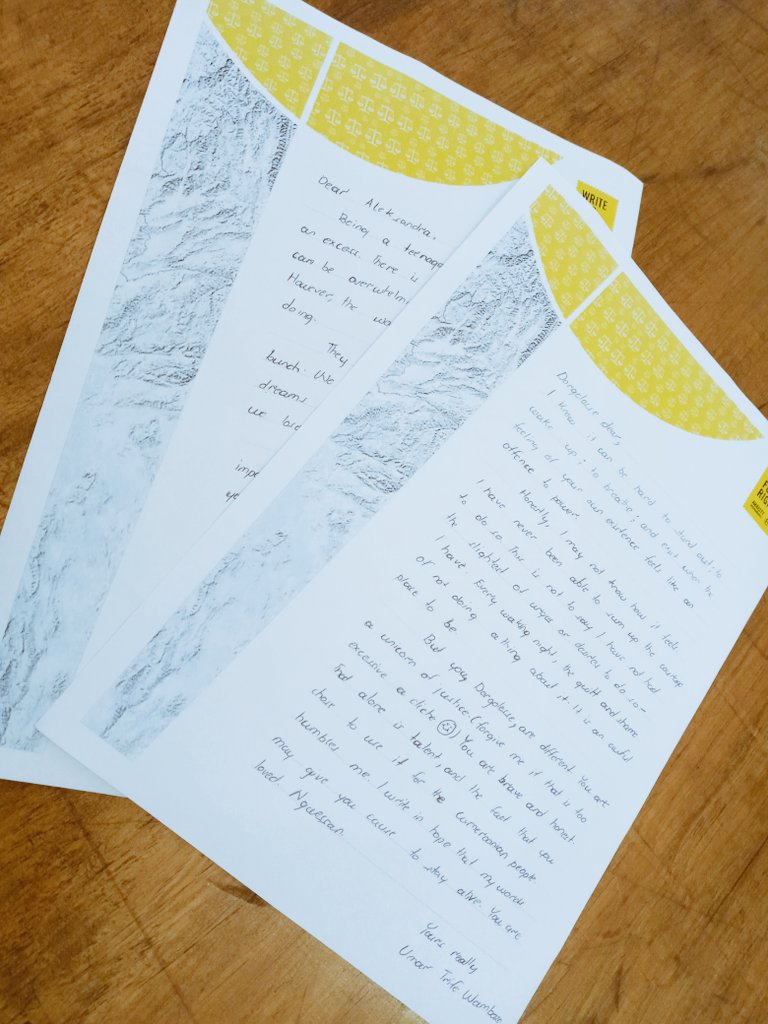 Dear Aleksandra,
Being a teenage
an excess. There is
can be overwhelm
However, the wa
doing.
They
bunch. We
dreams
we
impo
yo
WRITE
Dorgelesse dear,
I know it can be hard to stand out; to
wake up; to breathe; and exist when the
feeling of your own existence feels like an
offence to power.
Honestly, I may not know how it feels
I have never been able to sum up the courage
to do so. This is not to say I have not had
the slightest of urges or desires to do so -
I have. Every waking night, the guilt and shame
of not doing a thing about it. It is an awful
place to be.
But you, Dorgelesse, are different. You are
a unicorn of justice (forgive me if that is too
excessive a cliche ☺) You are brave and honest.
That alone is talent, and the fact that you
chose to use it for the Cameroonian people
humbles me. I write in hope that my words
may give you cause to stay alive. You are
loved, Nguessan.
Yours really
Umar
FO
RIG